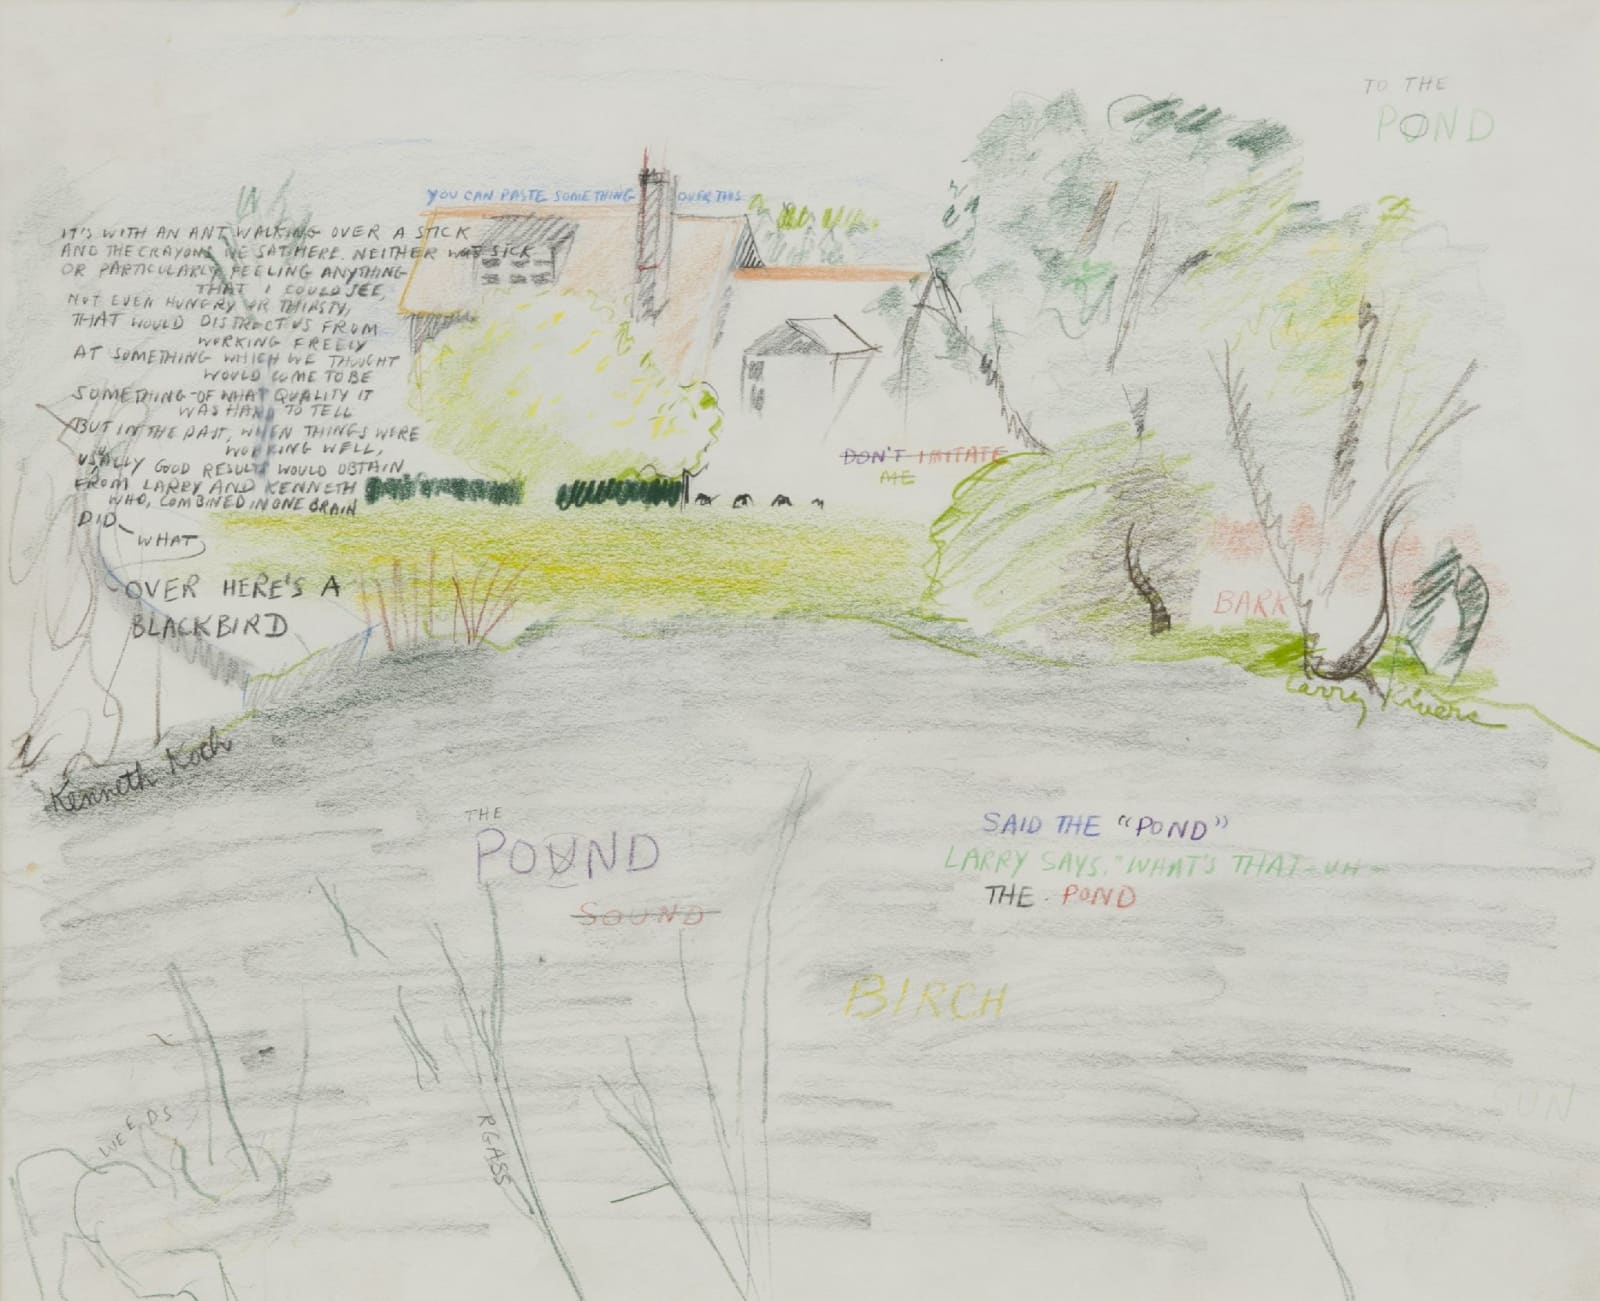 TO THE
POND
YOU CAN PASTE SOMETHING OVER THIS
IT'S WITH AN ANT WALKING OVER A STICK
AND THE CRAYONS WE SAT HERE. NEITHER WAS SICK
OR PARTICULARLY FEELING ANYTHING
THAT I COULD SEE,
NOT EVEN HUNGRY OR THIRSTY,
THAT WOULD DISTRECT US FROM
WORKING FREELY
AT SOMETHING WHICH WE THOUGHT
WOULD COME TO BE
SOMETHING-OF WHAT QUALITY IT
WAS HARD TO TELL
BUT IN THE PAST, WHEN THINGS WERE
WORKING WELL,
USUALLY GOOD RESULTS WOULD OBTAIN
FROM LARRY AND KENNETH
WHO, COMBINED IN ONE BRAIN
DID
WHAT
OVER HERE'S A
BLACKBIRD
DON'T IMITATE
ME
BARK
Larry Rivers
Kenneth Koch
THE
POUND
SOUND
SAID THE "POND"
LARRY SAYS, "WHAT'S THAT-UH-
THE. POND
BIRCH
UN
WEEDS
RGASS